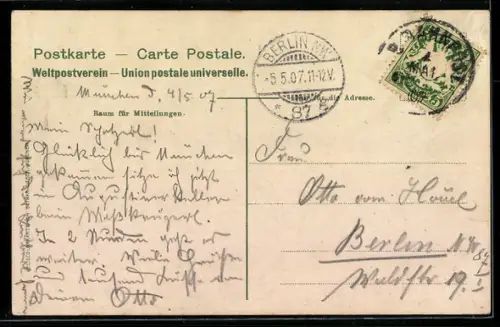 Postkarte — Carte Postale.
Weltpostverein — Union postale universelle.
München d. 4/5 07.
Raum für Mitteilungen:
für die Adresse.
BERLIN N.W.
5.5.07.11-12V.
* 87
Mein Schatzerl!
Glücklich bis München
gekommen sitze ich jetzt
im Augustiner Keller
beim Maßkrügerl.
In 2 Stunden geht es
weiter. Viele Grüße
u. tausend Küsse von
Deinem Otto
Frau
Otto vom
Berlin N.W.
Waldstr 19.